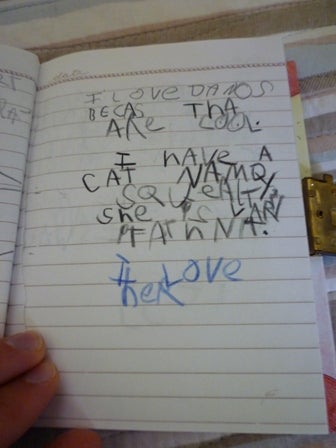 I LOVE DANOS
BECAS THA
ARe COOL.
I hAVe A
CAT NAMD
SQUeALTY
She IS VARY
I Love
heR